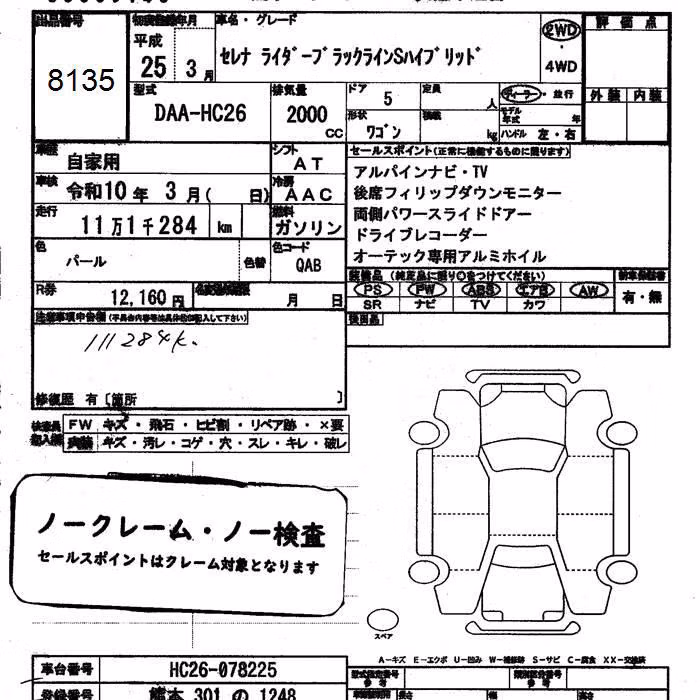 出品番号
8135
初度登録年月
平成
25 3 月
車名・グレード
セレナ ライダーブラックラインSハイブリッド
2WD
・
4WD
評価点
外装 内装
型式
DAA-HC26
排気量
2000
CC
ドア
5
定員
人
形状
ワゴン
積載
kg
ディーラー・並行
モデル年式 年
ハンドル 左・右
車歴
自家用
シフト
AT
車検
令和10年 3月( 日)
冷房
AAC
走行
11万1千284 km
燃料
ガソリン
色
パール
色替
色コード
QAB
R券
12,160円
名義変更期限
月 日
セールスポイント(正常に機能するものに限ります)
アルパインナビ・TV
後席フィリップダウンモニター
両側パワースライドドアー
ドライブレコーダー
オーテック専用アルミホイル
装備品 (純正品に限り○をつけてください)
PS PW ABS エアB AW
SR ナビ TV カワ
新車保証書
有・無
後日品
注意事項申告欄(不具合内容等は具体的に記入して下さい)
111284K.
修復歴 有〔箇所 〕
検査員記入欄
FW キズ・飛石・ヒビ割・リペア跡・×要
内装 キズ・汚レ・コゲ・穴・スレ・キレ・破レ
ノークレーム・ノー検査
セールスポイントはクレーム対象となります
スペア
A-キズ E-エクボ U-凹み W-補修跡 S-サビ C-腐食 XX-交換済
車台番号
HC26-078225
登録番号
熊本 301 の 1248
型式指定番号
参考
類別区分番号
参考
長さ
幅
高さ